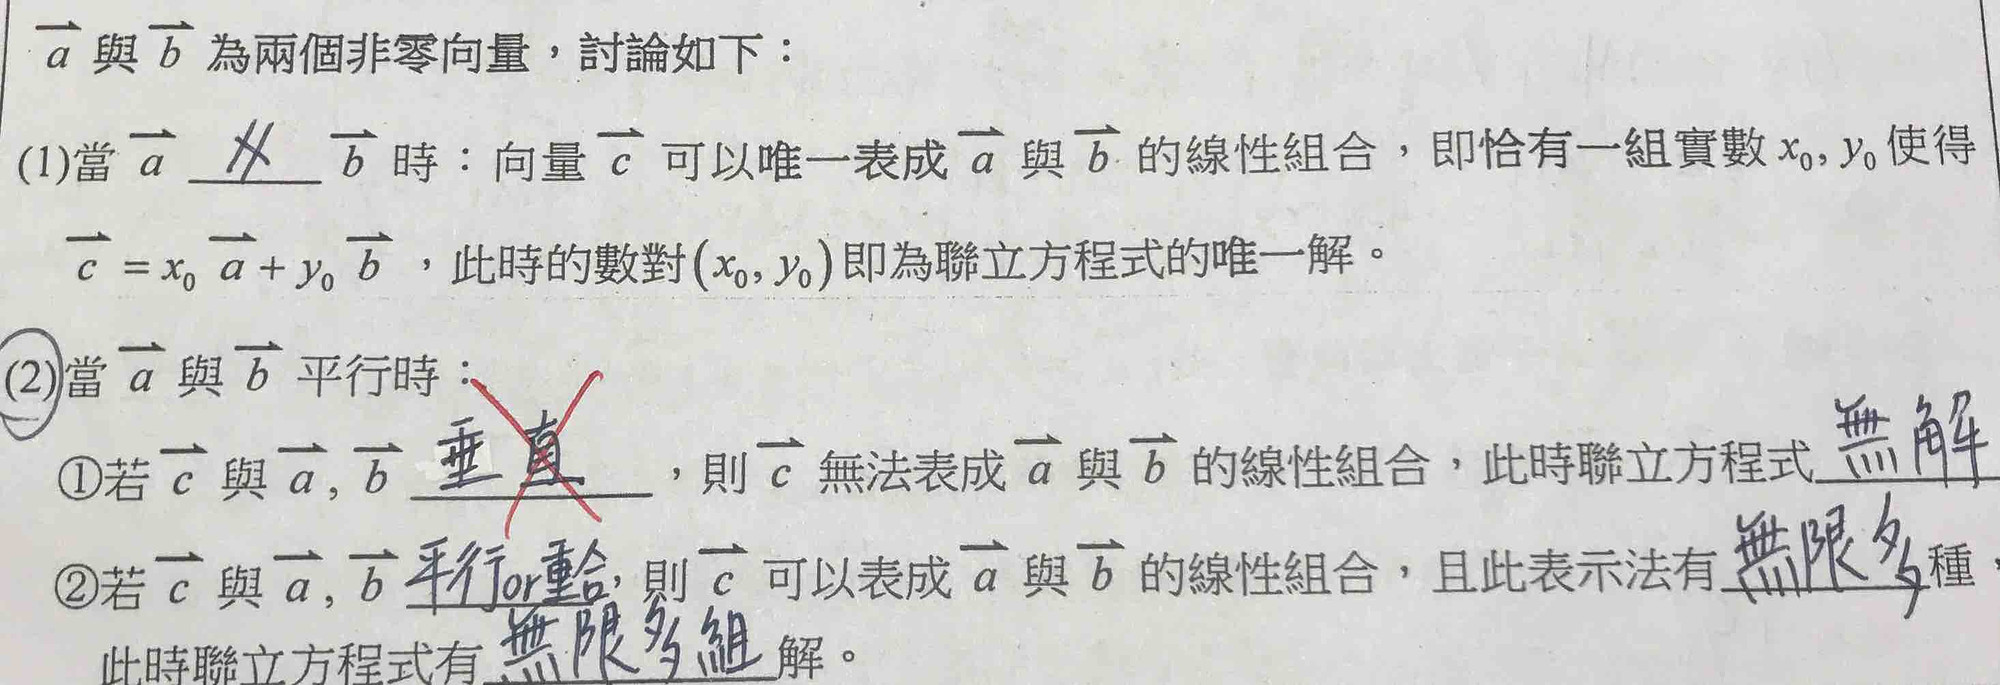 a 與 b 為兩個非零向量，討論如下：
(1)當 a ∦ b 時：向量 c 可以唯一表成 a 與 b 的線性組合，即恰有一組實數 x₀, y₀ 使得
c = x₀ a + y₀ b ，此時的數對(x₀, y₀)即為聯立方程式的唯一解。
(2)當 a 與 b 平行時：
①若 c 與 a , b 垂直 ，則 c 無法表成 a 與 b 的線性組合，此時聯立方程式無解
②若 c 與 a , b 平行or重合，則 c 可以表成 a 與 b 的線性組合，且此表示法有無限多種，
此時聯立方程式有無限多組解。